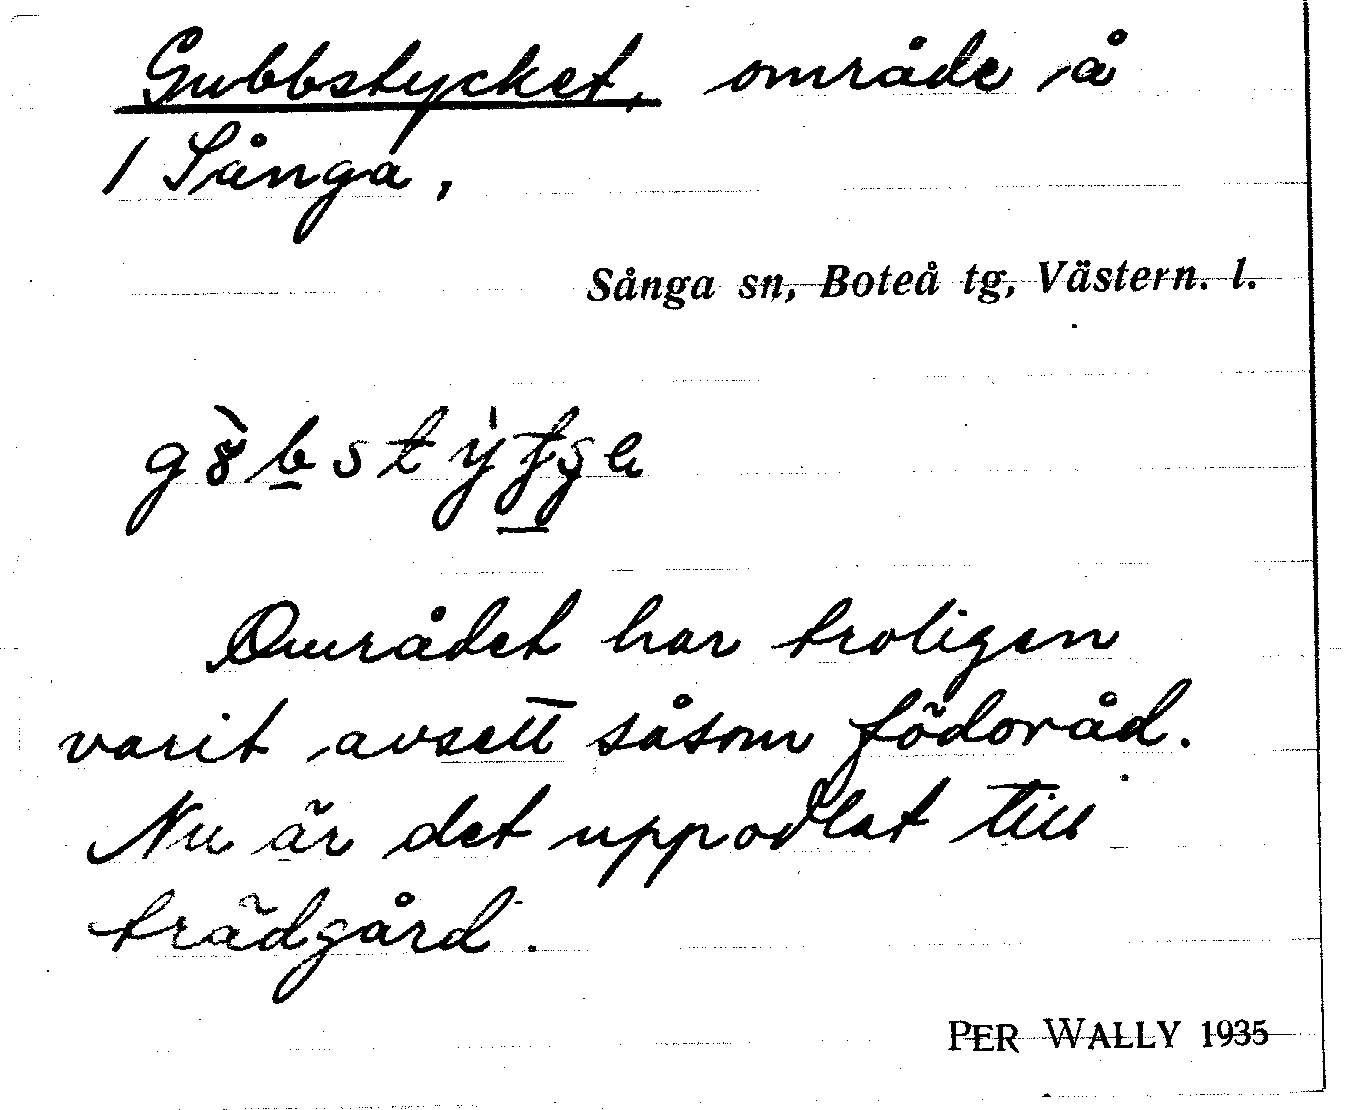 Gubbstycket, område å
1 Sånga,
Sånga sn, Boteå tg, Västern. l.
Området har troligen
varit avsett såsom födoråd.
Nu är det uppodlat till
trädgård.
PER WALLY 1935